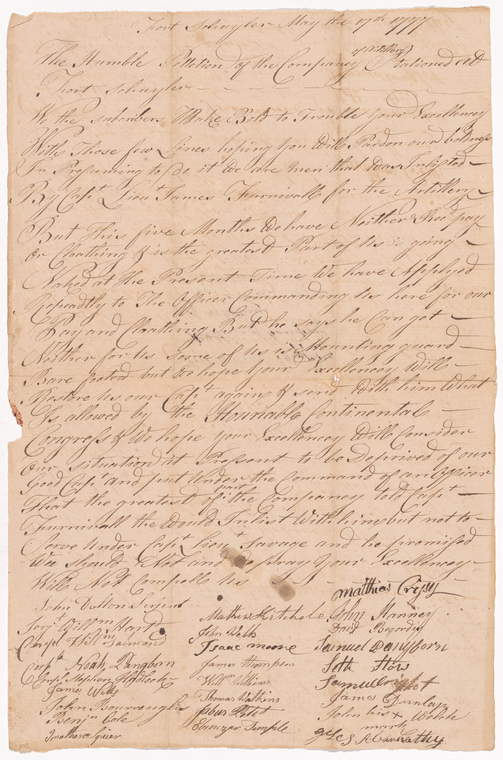 Fort Schuyler May the 17th 1777
The Humble Petetion of the Companey of Artilary Stationed At
Fort Schuyler
We the Subcribers Make Bold to Trouble your Excellencey
With These few Lines hoping You Will Pardon our boldness
In Presuming to do it We are Men that Was Inlisted
By Capt Lieut James Furnivall for the Artillery
But This five Months We have Neither Rec pay
Or Cloathing & is the greatest Part of Us going
Naked at the Present Time We have Applyed
Repeadtly to The Officer Commanding Us here for our
Pay and Cloathing But he Says he Can get
Neither for Us Some of Us is Mounting guard
Bare footed but We hope Your Excellencey Will
Restore Us our Capt again & send With him What
Is allowed by the Honnable Continental
Congress & We hope your Excellencey Will Consider
Our Situation at Present to be Deprived of our
Good Capt and put Under the Command of an Officer
That the greatest part of the Companey told Capt
Furnivall the Would Inlist With him but not to
Serve Under Capt Lieut Savage and he promised
Wee Should Not and We pray Your Excellencey
Will Not Compell Us
John Dotton Serjent
Corpl
Corpl Noah Langborn
Stephen
James Wells
John Borroughs
Benjn Cole
Jonathan Squier
Mathew Kitchele
John
Isaac moore
James Thompson
Willm Williams
Thomas Watkins
Jabez
Ebenezer Temple
Matthias Cressy
John Manney
David
Samuel Danforn
Seth How
Samuel
James Dunlay
John his + Welch
mark